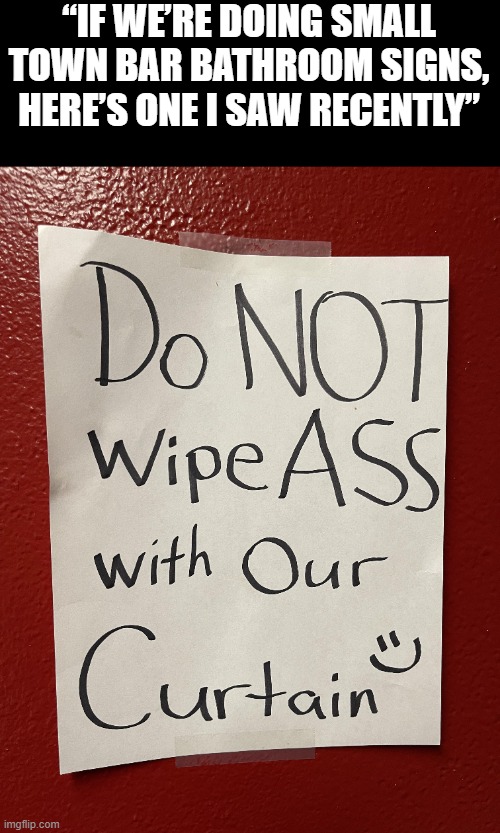 “IF WE’RE DOING SMALL
TOWN BAR BATHROOM SIGNS,
HERE’S ONE I SAW RECENTLY”
Do NOT
Wipe ASS
with Our
Curtain
imgflip.com